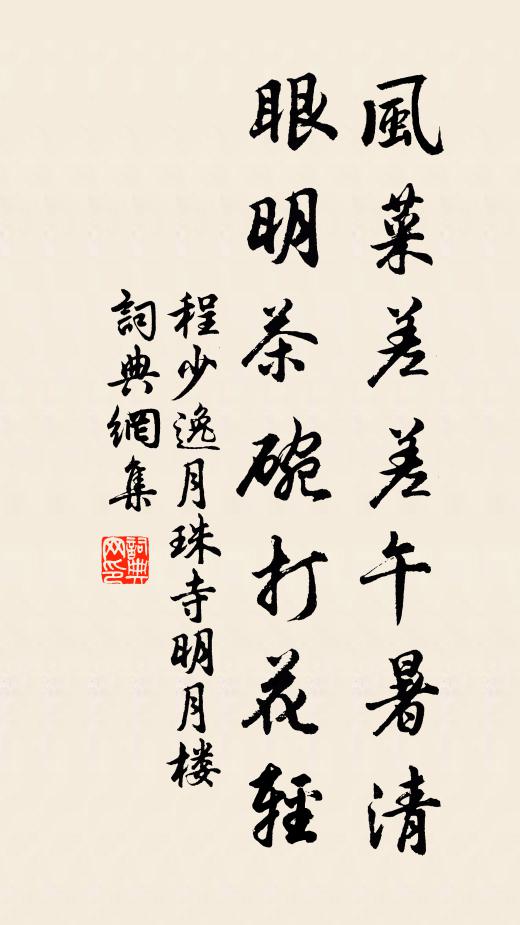 風葉差差午暑清
眼明茶碗打花輕
程少逸月珠寺明月楼
詞典網集
詞典网印